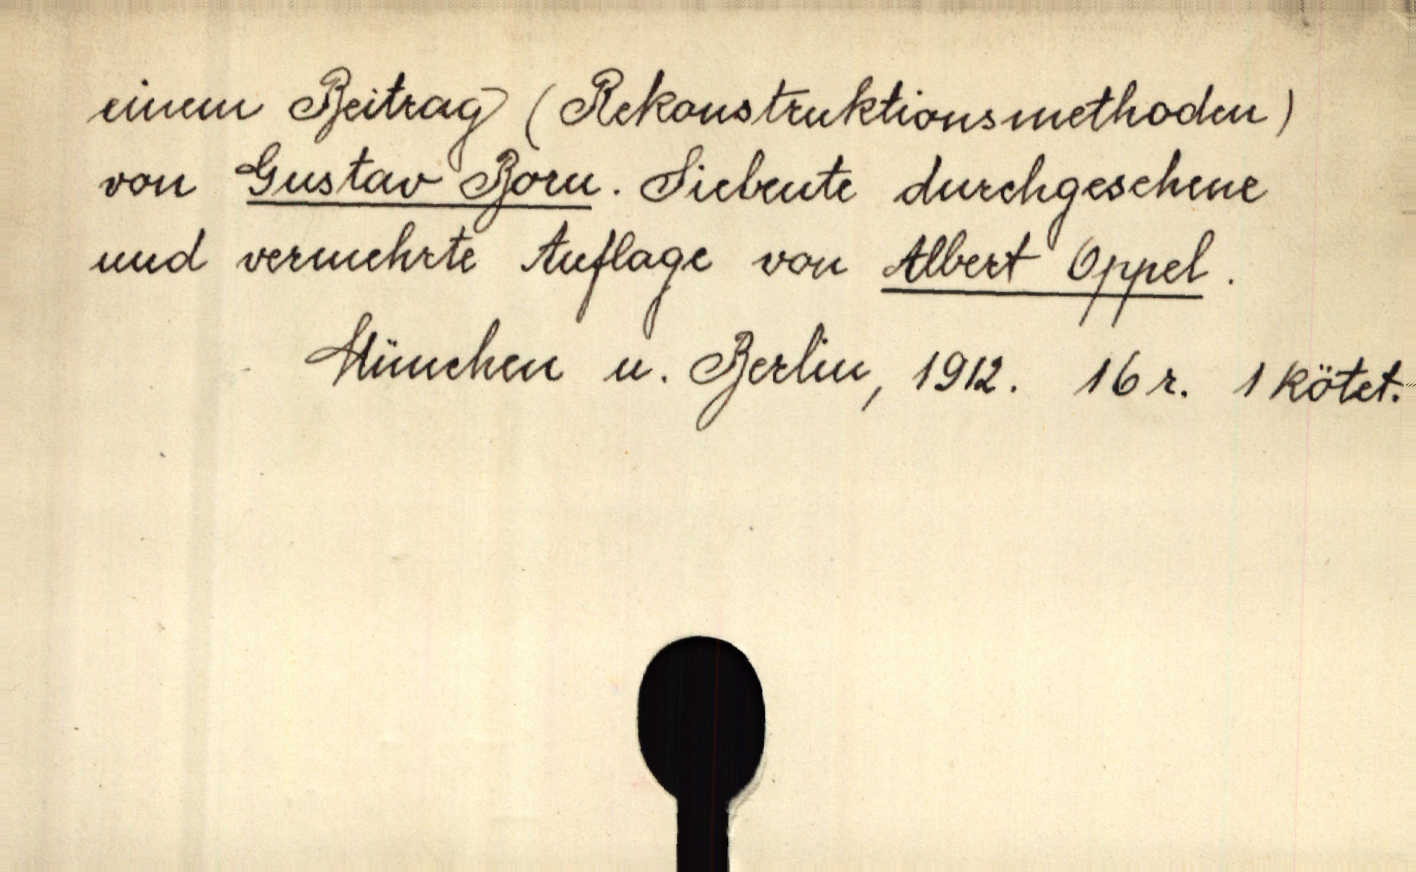 einem Beitrag (Rekonstruktionsmethoden)
von Gustav Born. Siebente durchgesehene
und vermehrte Auflage von Albert Oppel.
München u. Berlin, 1912. 16 r. 1 kötet.